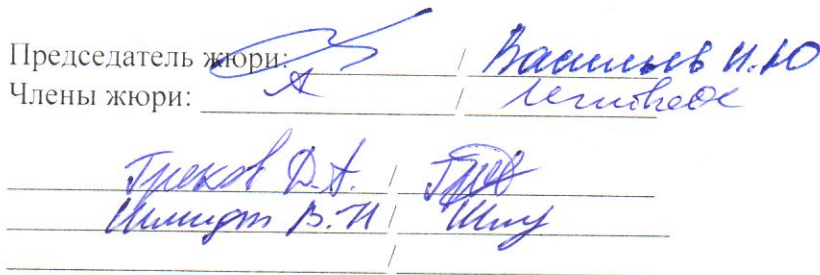 Председатель жюри: / Васильев И.Ю
Члены жюри: /
Греков Д.А. /
Шмидт В.И /
/